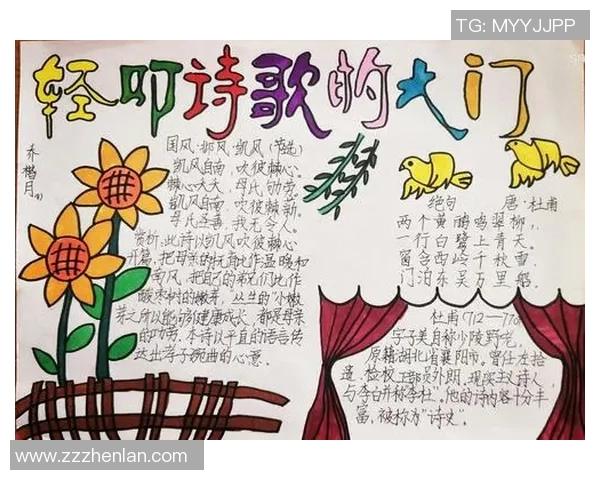 TG: MYYJJPP
轻叩诗歌的大门
乔楷月
国风·邶风·凯风（节选）
凯风自南，吹彼棘心。
棘心夭夭，母氏劬劳。
凯风自南，吹彼棘薪。
母氏圣善，我无令人。
赏析：此诗以凯风吹彼棘心
开篇，把母亲的抚育比作温暖和
南风，把自己的弟兄们比作
酸枣树的嫩芽。丛生的"小嫩
芽之所以能够健康成长，都是母亲
的功劳。本诗以平直的语言传
达出孝子婉曲的心意。
绝句 唐·杜甫
两个黄鹂鸣翠柳，
一行白鹭上青天。
窗含西岭千秋雪，
门泊东吴万里船。
杜甫712—770
字子美自称少陵野老，
原籍湖北省襄阳市。曾任左拾
遗、检校工部员外朗，现实主义诗人
与李白并称李杜。他的诗内容十分丰
富，被称为"诗史"。
www.zzzhenlan.com